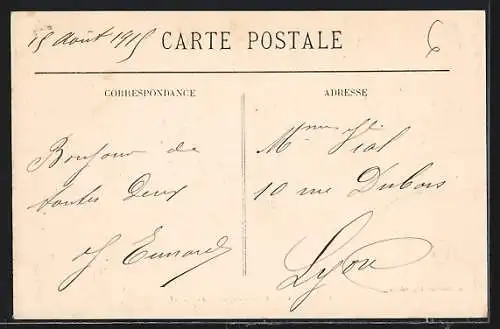 15 Août 1915 CARTE POSTALE
CORRESPONDANCE
ADRESSE
Bonjour de
toutes Deux
Mme Vial
10 rue Dubois
Lyon